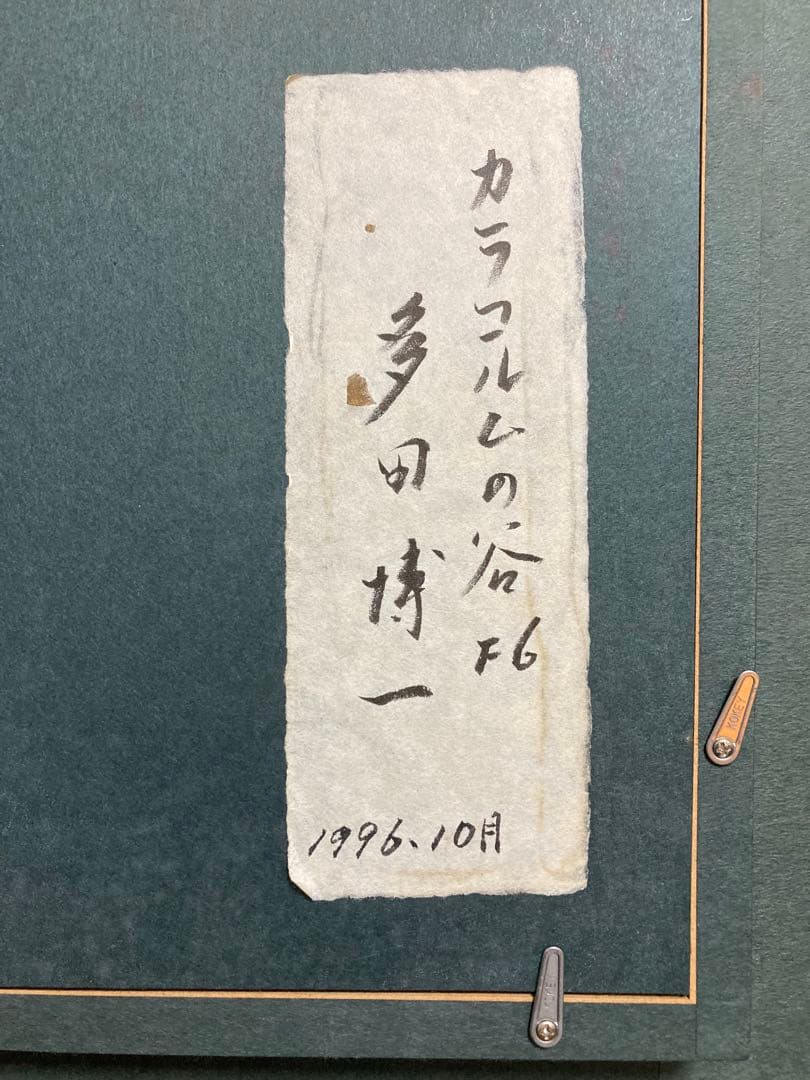 カラコルムの谷 F6
多田博一
1996.10月
KOKEY